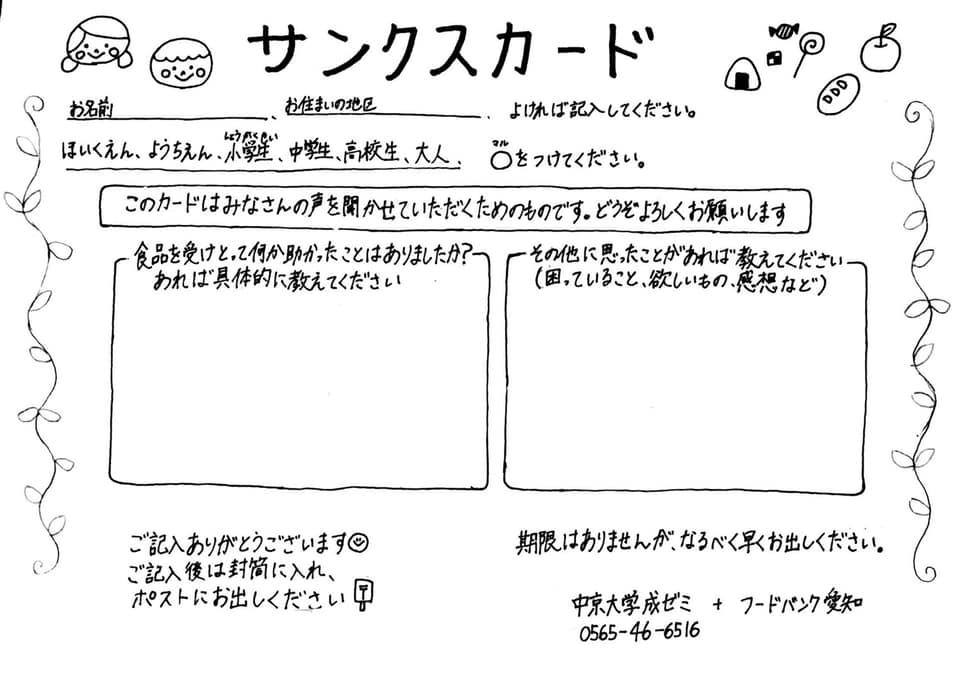 サンクスカード
お名前 、お住まいの地区 、よければ記入してください。
ほいくえん、ようちえん、小学生、中学生、高校生、大人、 ○をつけてください。
しょうがくせい
マル
このカードはみなさんの声を聞かせていただくためのものです。どうぞよろしくお願いします
食品を受けとって何か助かったことはありましたか?
あれば具体的に教えてください
その他に思ったことがあれば教えてください
(困っていること、欲しいもの、感想など)
ご記入ありがとうございます
ご記入後は封筒に入れ、
ポストにお出しください
期限はありませんが、なるべく早くお出しください。
中京大学成ゼミ + フードバンク愛知
0565-46-6516